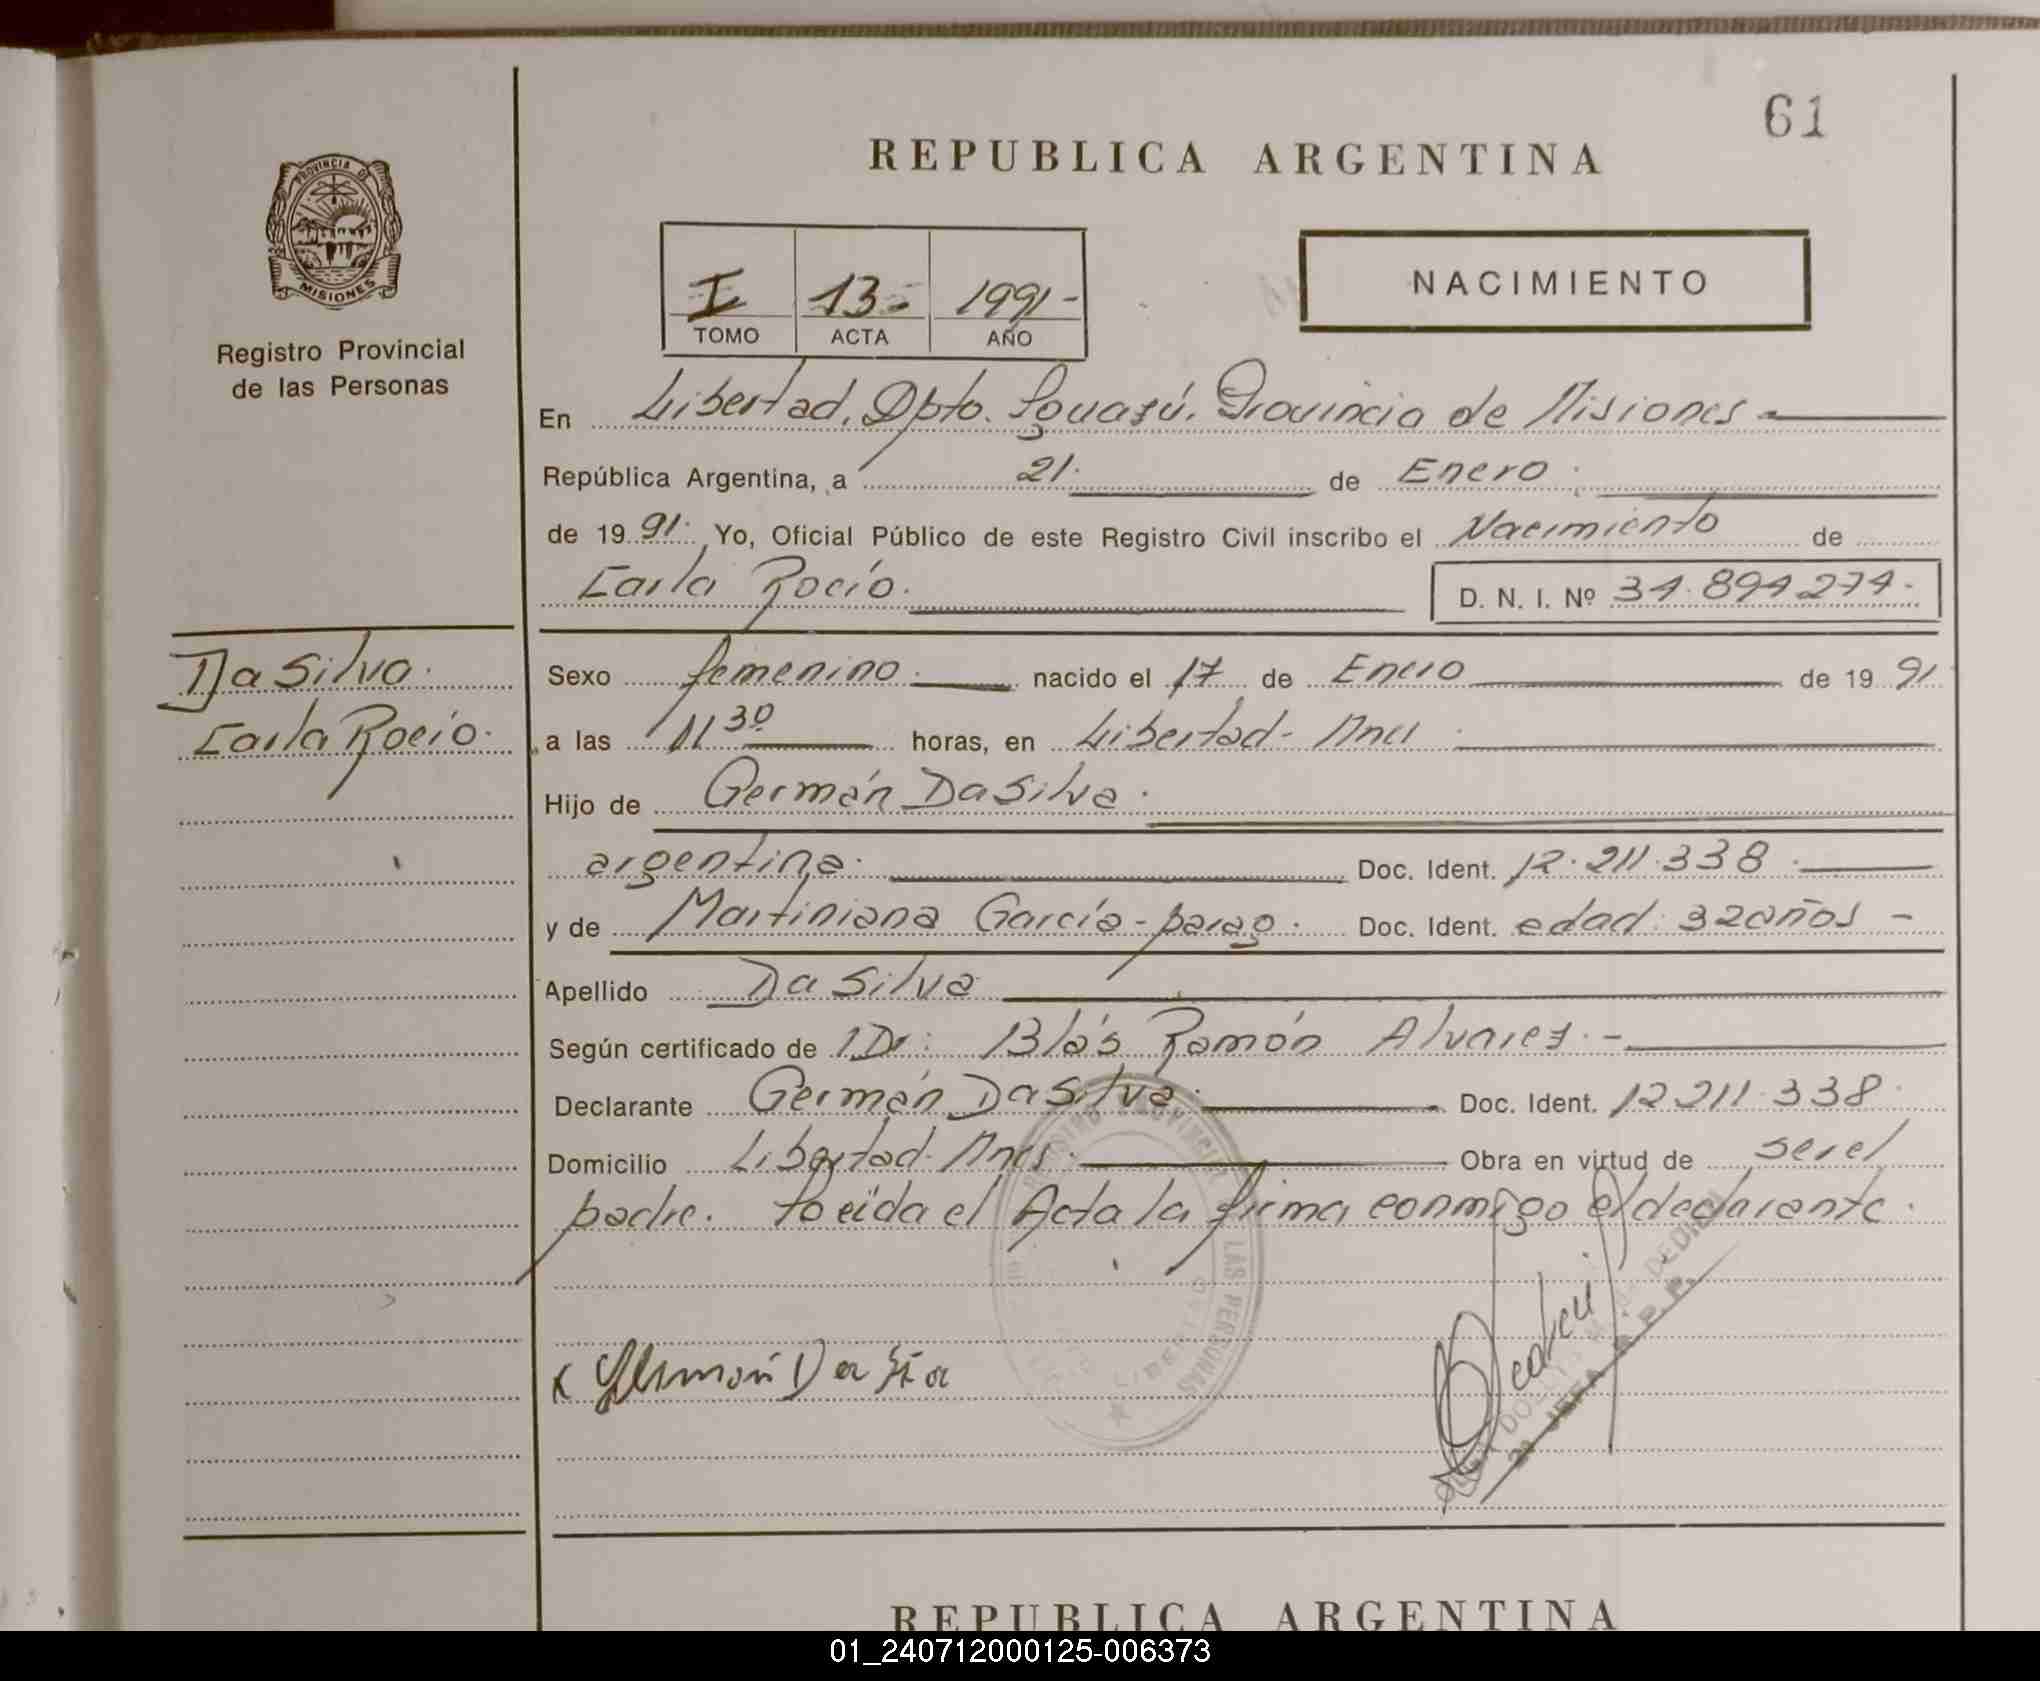 61
REPUBLICA ARGENTINA
PROVINCIA DE
MISIONES
Registro Provincial
de las Personas
I 13- 1991-
TOMO ACTA AÑO
NACIMIENTO
En Libertad, Dpto. Iguazú. Provincia de Misiones
República Argentina, a 21. de Enero.
de 1991. Yo, Oficial Público de este Registro Civil inscribo el Nacimiento de
Carla Rocío. D. N. I. Nº 34.894.274.
Da Silva.
Carla Rocío.
Sexo femenino. nacido el 17 de Enero de 1991
a las 11 30 horas, en Libertad- Mnes
Hijo de Germán Da Silva.
argentina. Doc. Ident. 12.211.338.
y de Martiniana García - parag. Doc. Ident. edad: 32 años -
Apellido Da Silva
Según certificado de 1 Dr: Blás Ramón Alvarez.-
Declarante Germán Da Silva. Doc. Ident. 12.211.338.
Domicilio Libertad- Mnes. Obra en virtud de ser el
padre. leída el Acta la firma conmigo el declarante.
REGISTRO PROVINCIAL DE LAS PERSONAS
LIBERTAD
x Germán Da Silva
JEFA R. P. P.
REPUBLICA ARGENTINA
01_240712000125-006373